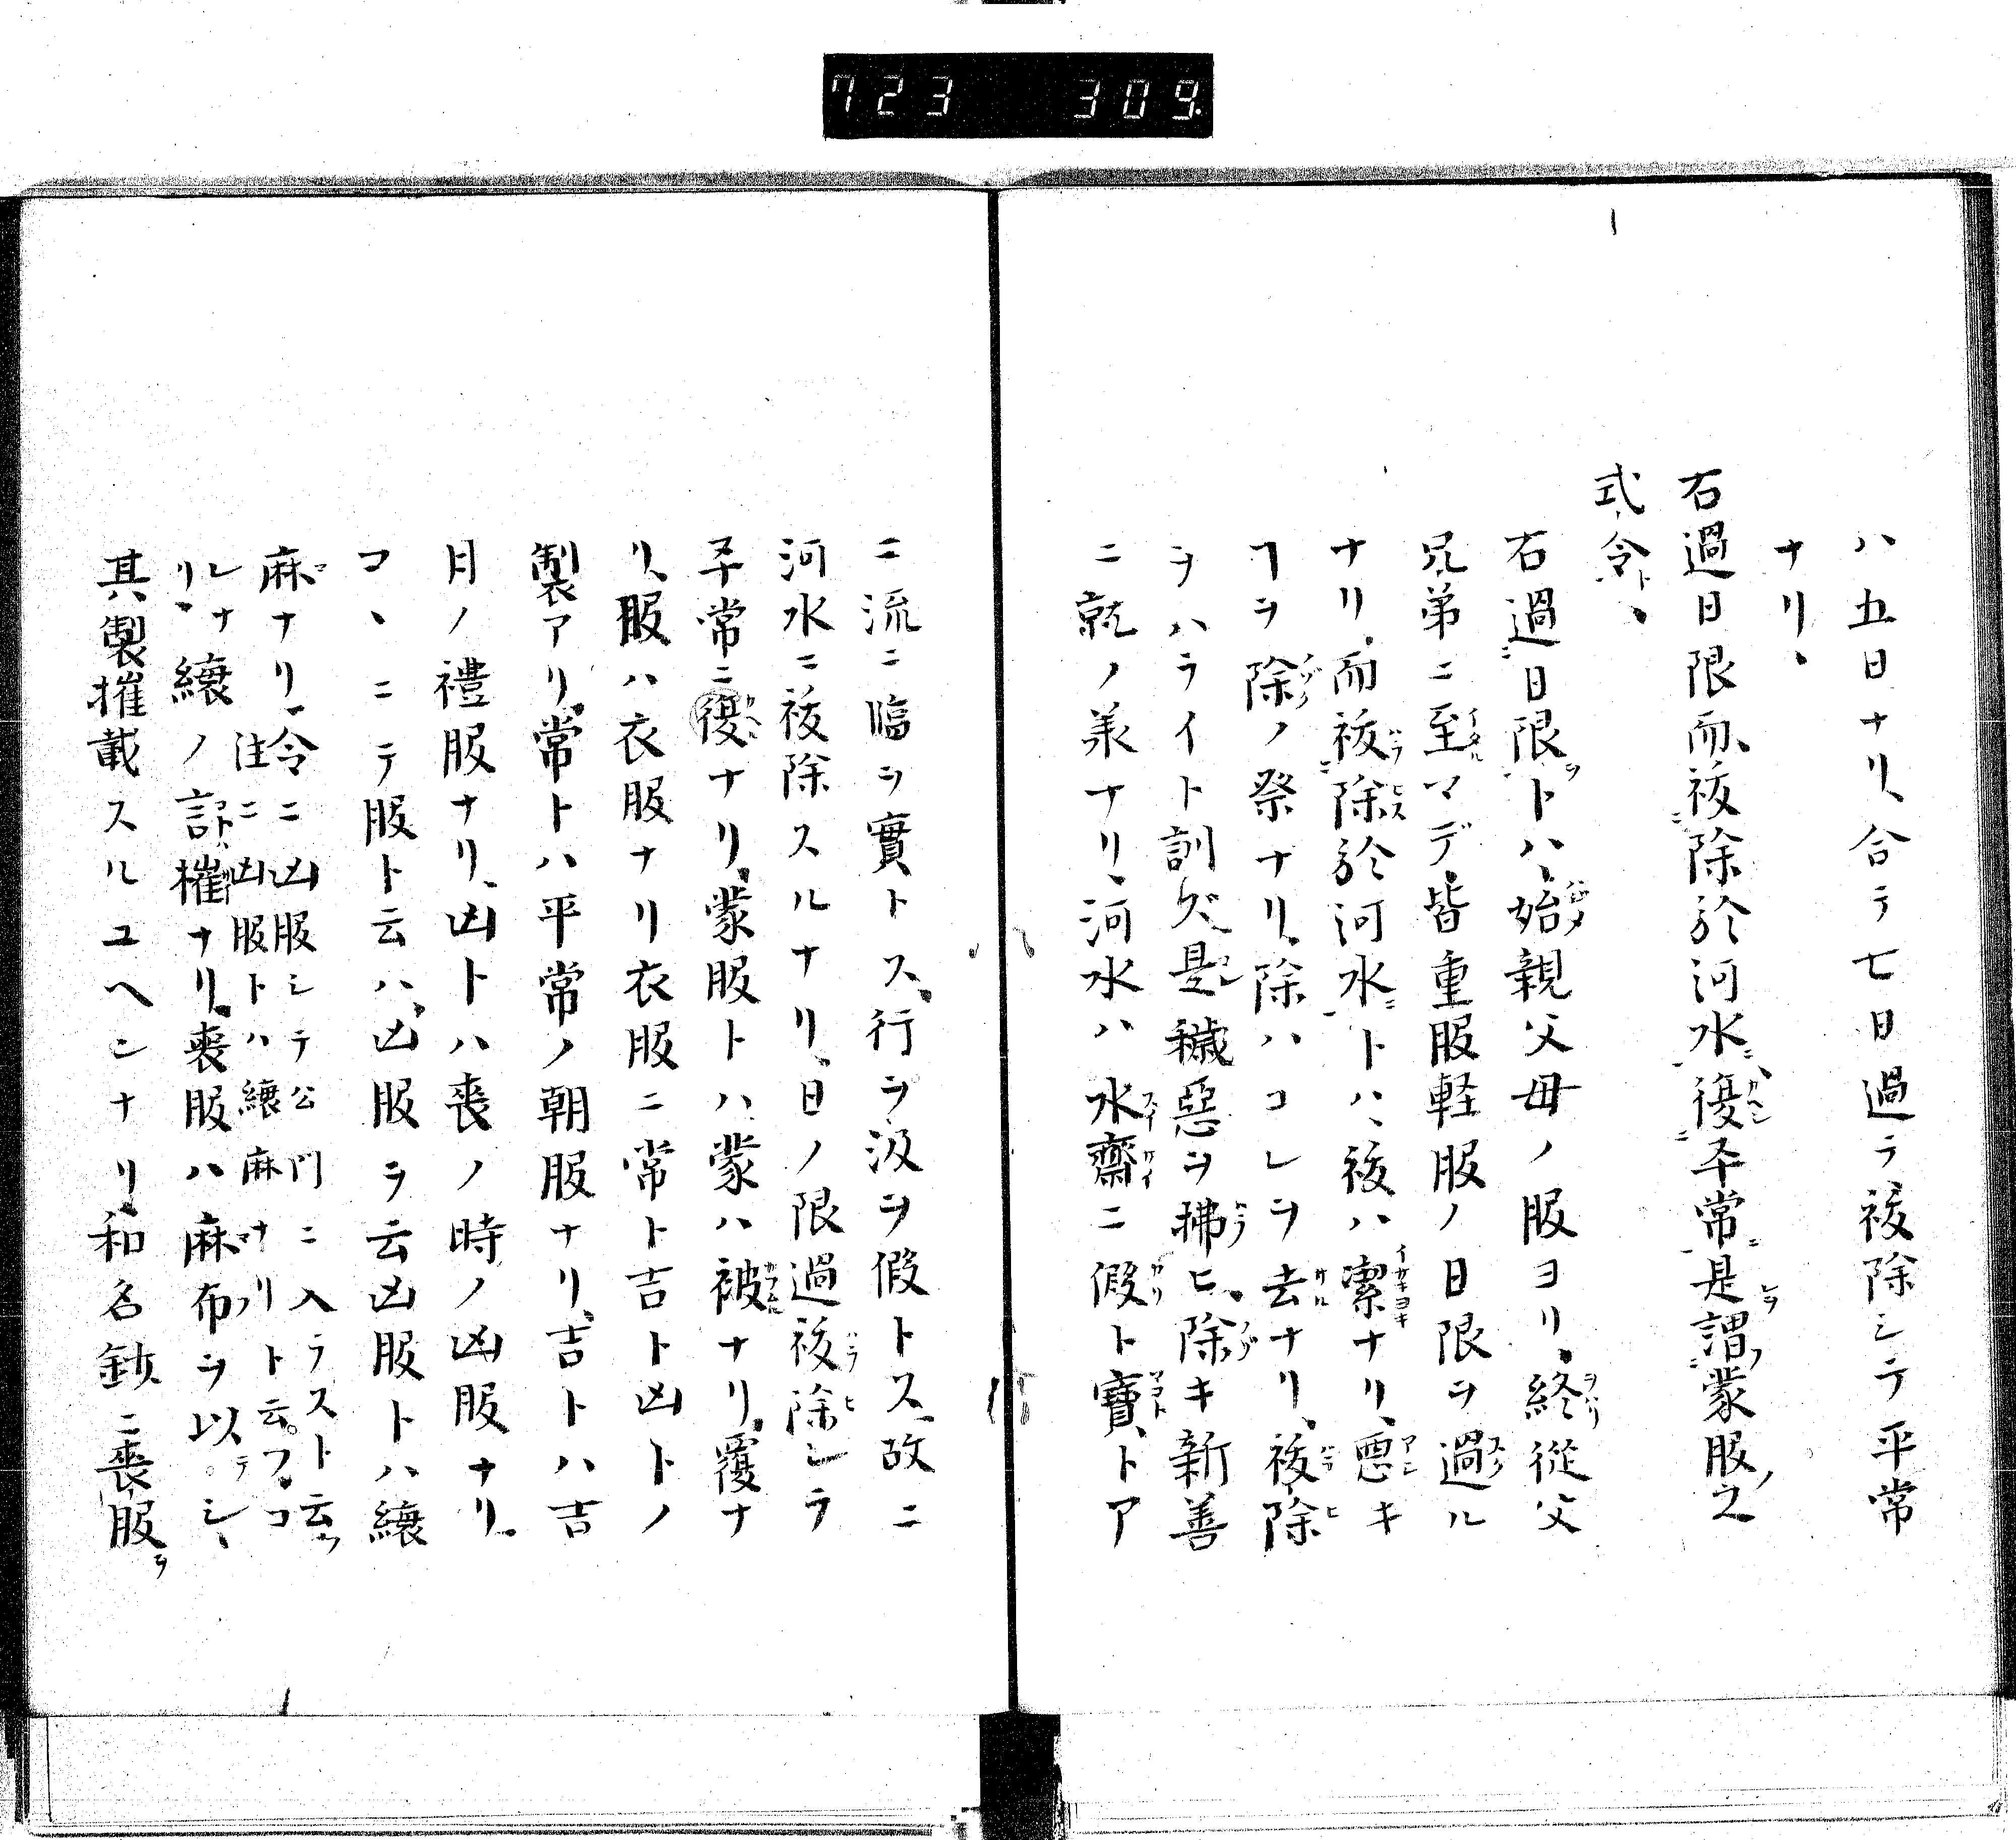 723 309.
ハ五日ナリ、合テ七日過テ祓除シテ平常
ナリ、
右過日限而、祓除於河水、復平常是謂蒙服之
式令、
右過日限トハ、始親父母ノ服ヨリ、終從父
兄弟ニ至マデ、皆重服軽服ノ日限ヲ過ル
ナリ、而祓除於河水トハ、祓ハ潔ナリ、悪キ
ヿヲ除ノ祭ナリ、除ハコレヲ去ナリ、祓除
ヲハライト訓ズ是穢惡ヲ拂ヒ、除キ新善
ニ就ノ義ナリ、河水ハ水齋ニ假ト寶トア
ニ流ニ臨ヲ實トス、行ヲ汲ヲ假トス、故ニ
河水ニ祓除スルナリ、日ノ限過祓除シテ
平常ニ復ナリ、蒙服トハ、蒙ハ被ナリ、覆ナ
リ、服ハ衣服ナリ衣服ニ常ト吉ト凶トノ
製アリ、常トハ平常ノ朝服ナリ、吉トハ吉
日ノ禮服ナリ、凶トハ喪ノ時ノ凶服ナリ、
コヽニテ服ト云ハ、凶服ヲ云凶服トハ縗
麻ナリ、令ニ凶服シテ公門ニ入ラスト云フ
注ニ凶服トハ縗麻ナリト云フ、コ
レナリ、縗ノ言ハ摧ナリ、喪服ハ麻布ヲ以テシ、
其製摧載スルユヘンナリ、和名鈔ニ喪服ヲ